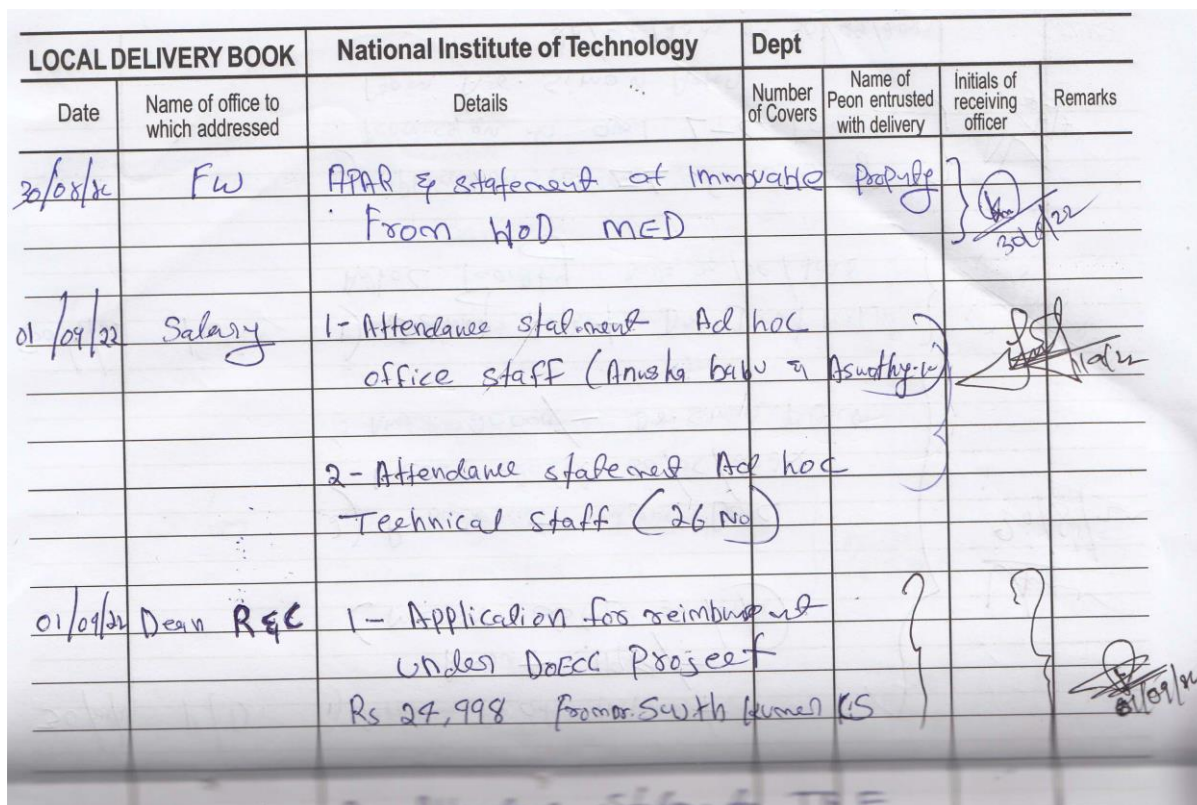 LOCAL DELIVERY BOOK National Institute of Technology Dept
Date Name of office to which addressed Details Number of Covers Name of Peon entrusted with delivery Initials of receiving officer Remarks
30/08/22 FW APAR & statement of Immovable Property
From HOD MED
30/8/22
01/09/22 Salary 1- Attendance statement Ad hoc
office staff (Anusha babu & Aswathy.
2- Attendance statement Ad hoc
Technical Staff (26 No)
01/09/22 Dean R&C 1- Application for reimbursement
under DoECC Project
Rs 24,998 From Dr. Sujith Kumar KS
01/09/22